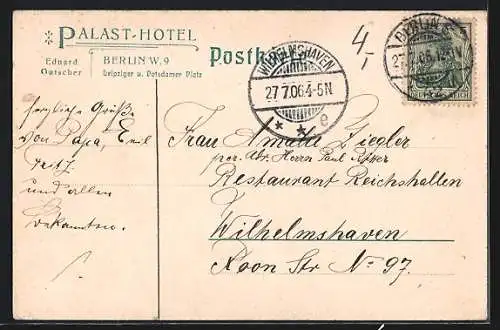 PALAST-HOTEL
Eduard Gutscher
BERLIN W, 9
Leipziger u. Potsdamer Platz
Postk
4,-
WILHELMSHAVEN
27 7.06.4-5N
* * e
BERLIN
27.7.06.
REICH
herzliche Grüße
von Papa, Emil
Fritz
und allen
Bekannten.
Frau Amalie Ziegler
per. Adr. Herrn Paul
Restaurant Reichshallen
Wilhelmshaven
Roon Str No 97.